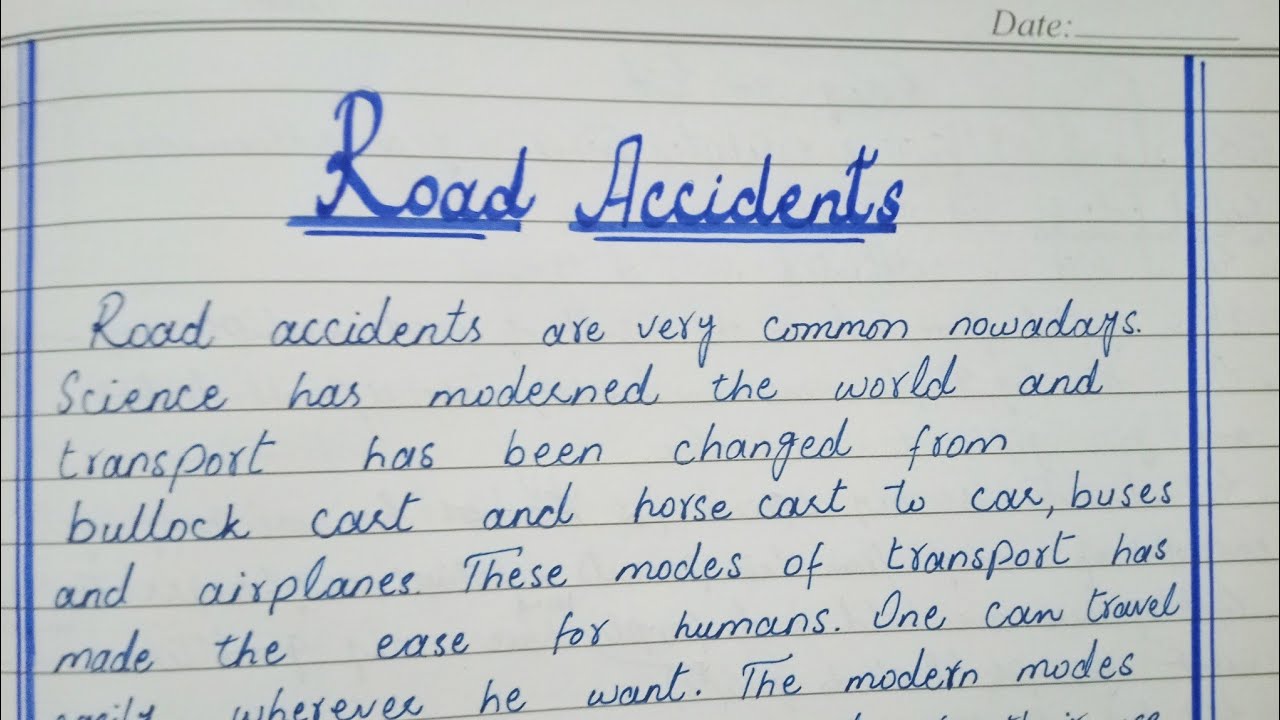 Date:
Road Accidents
Road accidents are very common nowadays.
Science has moderned the world and
transport has been changed from
bullock cart and horse cart to car, buses
and airplanes. These modes of transport has
made the ease for humans. One can travel
easily wherever he want. The modern modes